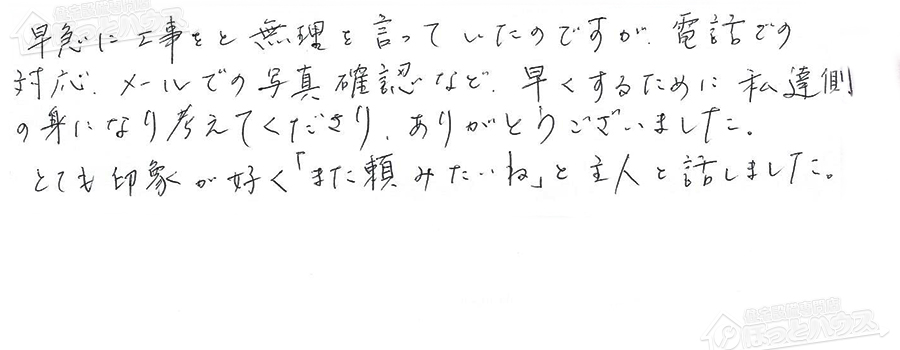 早急に工事をと無理を言っていたのですが、電話での
対応、メールでの写真確認など、早くするために私達側
の身になり考えてくださり、ありがとうございました。
とても印象が好く「また頼みたいね」と主人と話しました。
ほっとハウス